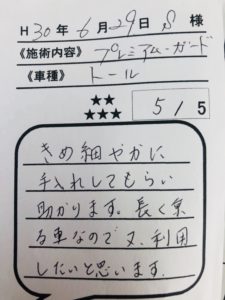 H30年6月29日 S 様
《施術内容》プレミアム・ガード
《車種》トール
★★
★★★
5 / 5
きめ細やかに
手入れしてもらい
助かります。長く乗
る車なので又、利用
したいと思います.